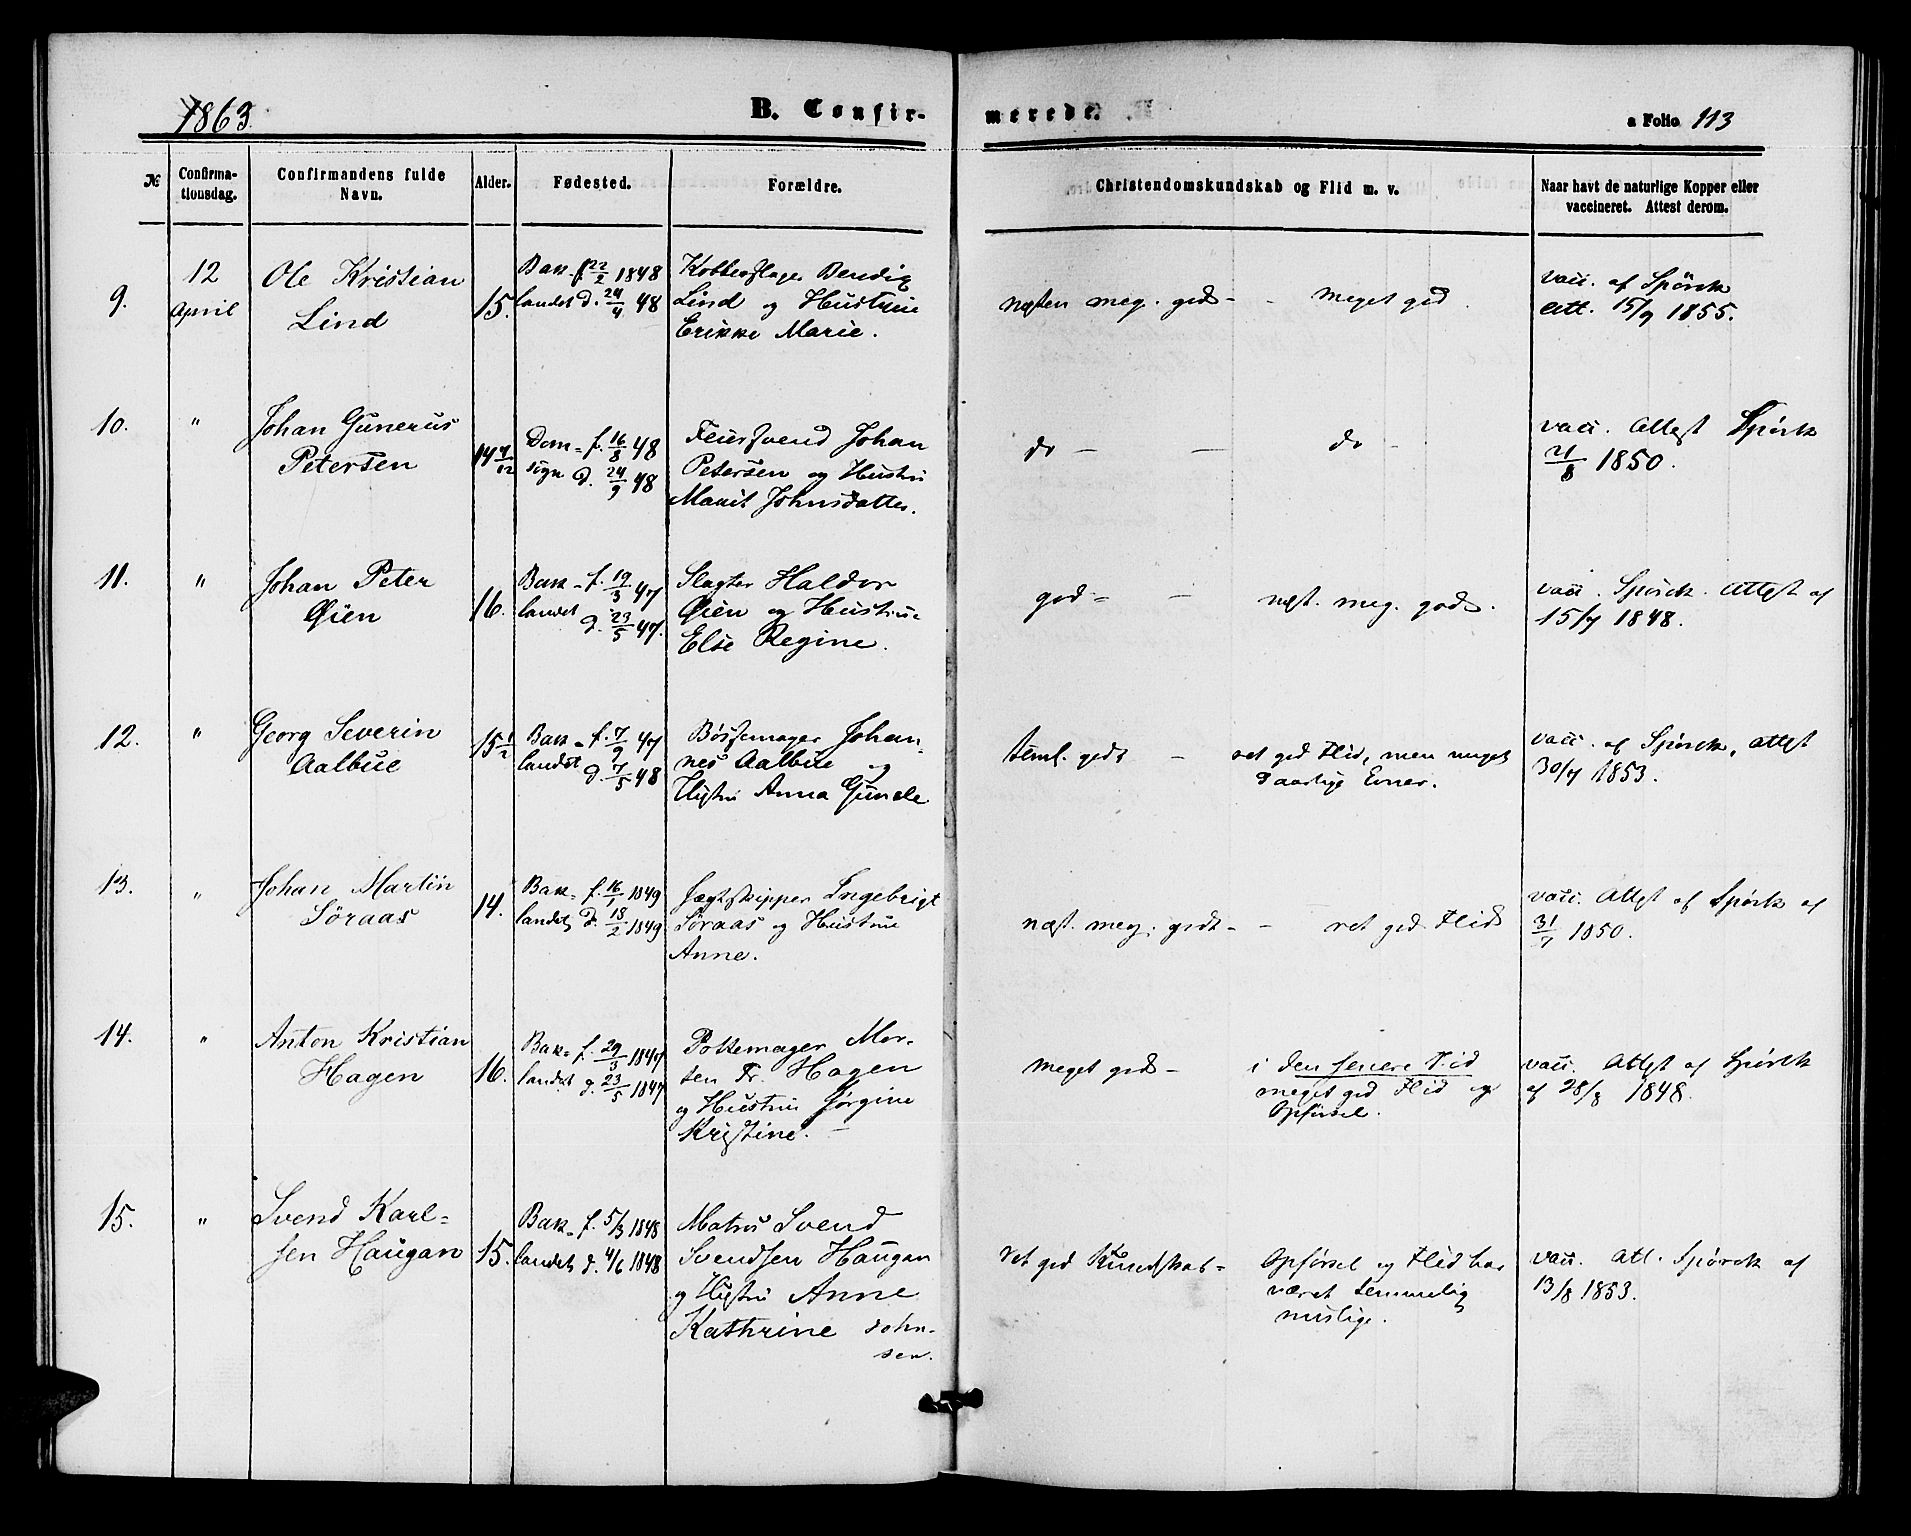 1863.
B. Confir-
merede.
a Folio 113
№
Confirma-
tionsdag.
Confirmandens fulde
Navn.
Alder.
Fødested.
Forældre.
Christendomskundskab og Flid m. v.
Naar havt de naturlige Kopper eller
vaccineret. Attest derom.
9.
12
April
Ole Kristian
Lind
15.
Bak- f. 22/2 1848
landet d. 24/4 48
Kobberslager Bendix
Lind og Hustrue
Erikke Marie.
næsten meg. gods - - meget god.
vacc. af Spörck
att. 15/9 1855.
10.
"
Johan Gunerus
Petersen
14 7/12
Dom- f. 16/8 48
sogn d. 24/9 48
Feiersvend Johan
Petersen og Hustru
Marit Johnsdatter.
do - - do -
vacc. Attest Spörck
21/8 1850.
11.
"
Johan Peter
Øien
16.
Bak- f. 19/3 47
landet d. 23/5 47.
Slagter Haldor
Øien og Hustrue
Else Regine.
god - - næst. meg. gods.
vacc. Spörck. Attest af
15/7 1848.
12.
"
Georg Severin
Aalbue
15 1/2
Bak- f. 7/9 47
landet d. 7/5 48
Bøssemager Johan-
nes Aalbue og
Hustru Anna Gunde
teml. godt - ret god Flid, men meget
daarlige Evner.
vacc. af Spörck, attest
30/7 1853.
13.
"
Johan Martin
Söraas
14.
Bak- f. 16/1 1849
landet d. 18/2 1849
Jægtskipper Ingebrigt
Söraas og Hustrue
Anne.
næst. meg. godt - - ret god Flid
vacc. Attest af Spörck af
31/7 1850.
14.
"
Anton Kristian
Hagen
16.
Bak- f. 29/3 1847
landet d. 23/5 1847
Pottemager Mor-
ten Fr. Hagen
og Hustru Jørgine
Kristine.
meget gods - i den senere Tid
meget god Flid og
Opførsel.
vacc. Attest af Spörck
af 28/8 1848.
15.
"
Svend Karl-
sen Haugan
15.
Bak- f. 5/3 1848
landet d. 4/6 1848
Matros Svend
Svendsen Haugan
og Hustru Anne
Kathrine John-
sen.
ret god Kundskab - Opførsel og Flid har
været temmelig
mislige.
vacc. Att. Spörck af
13/8 1853.